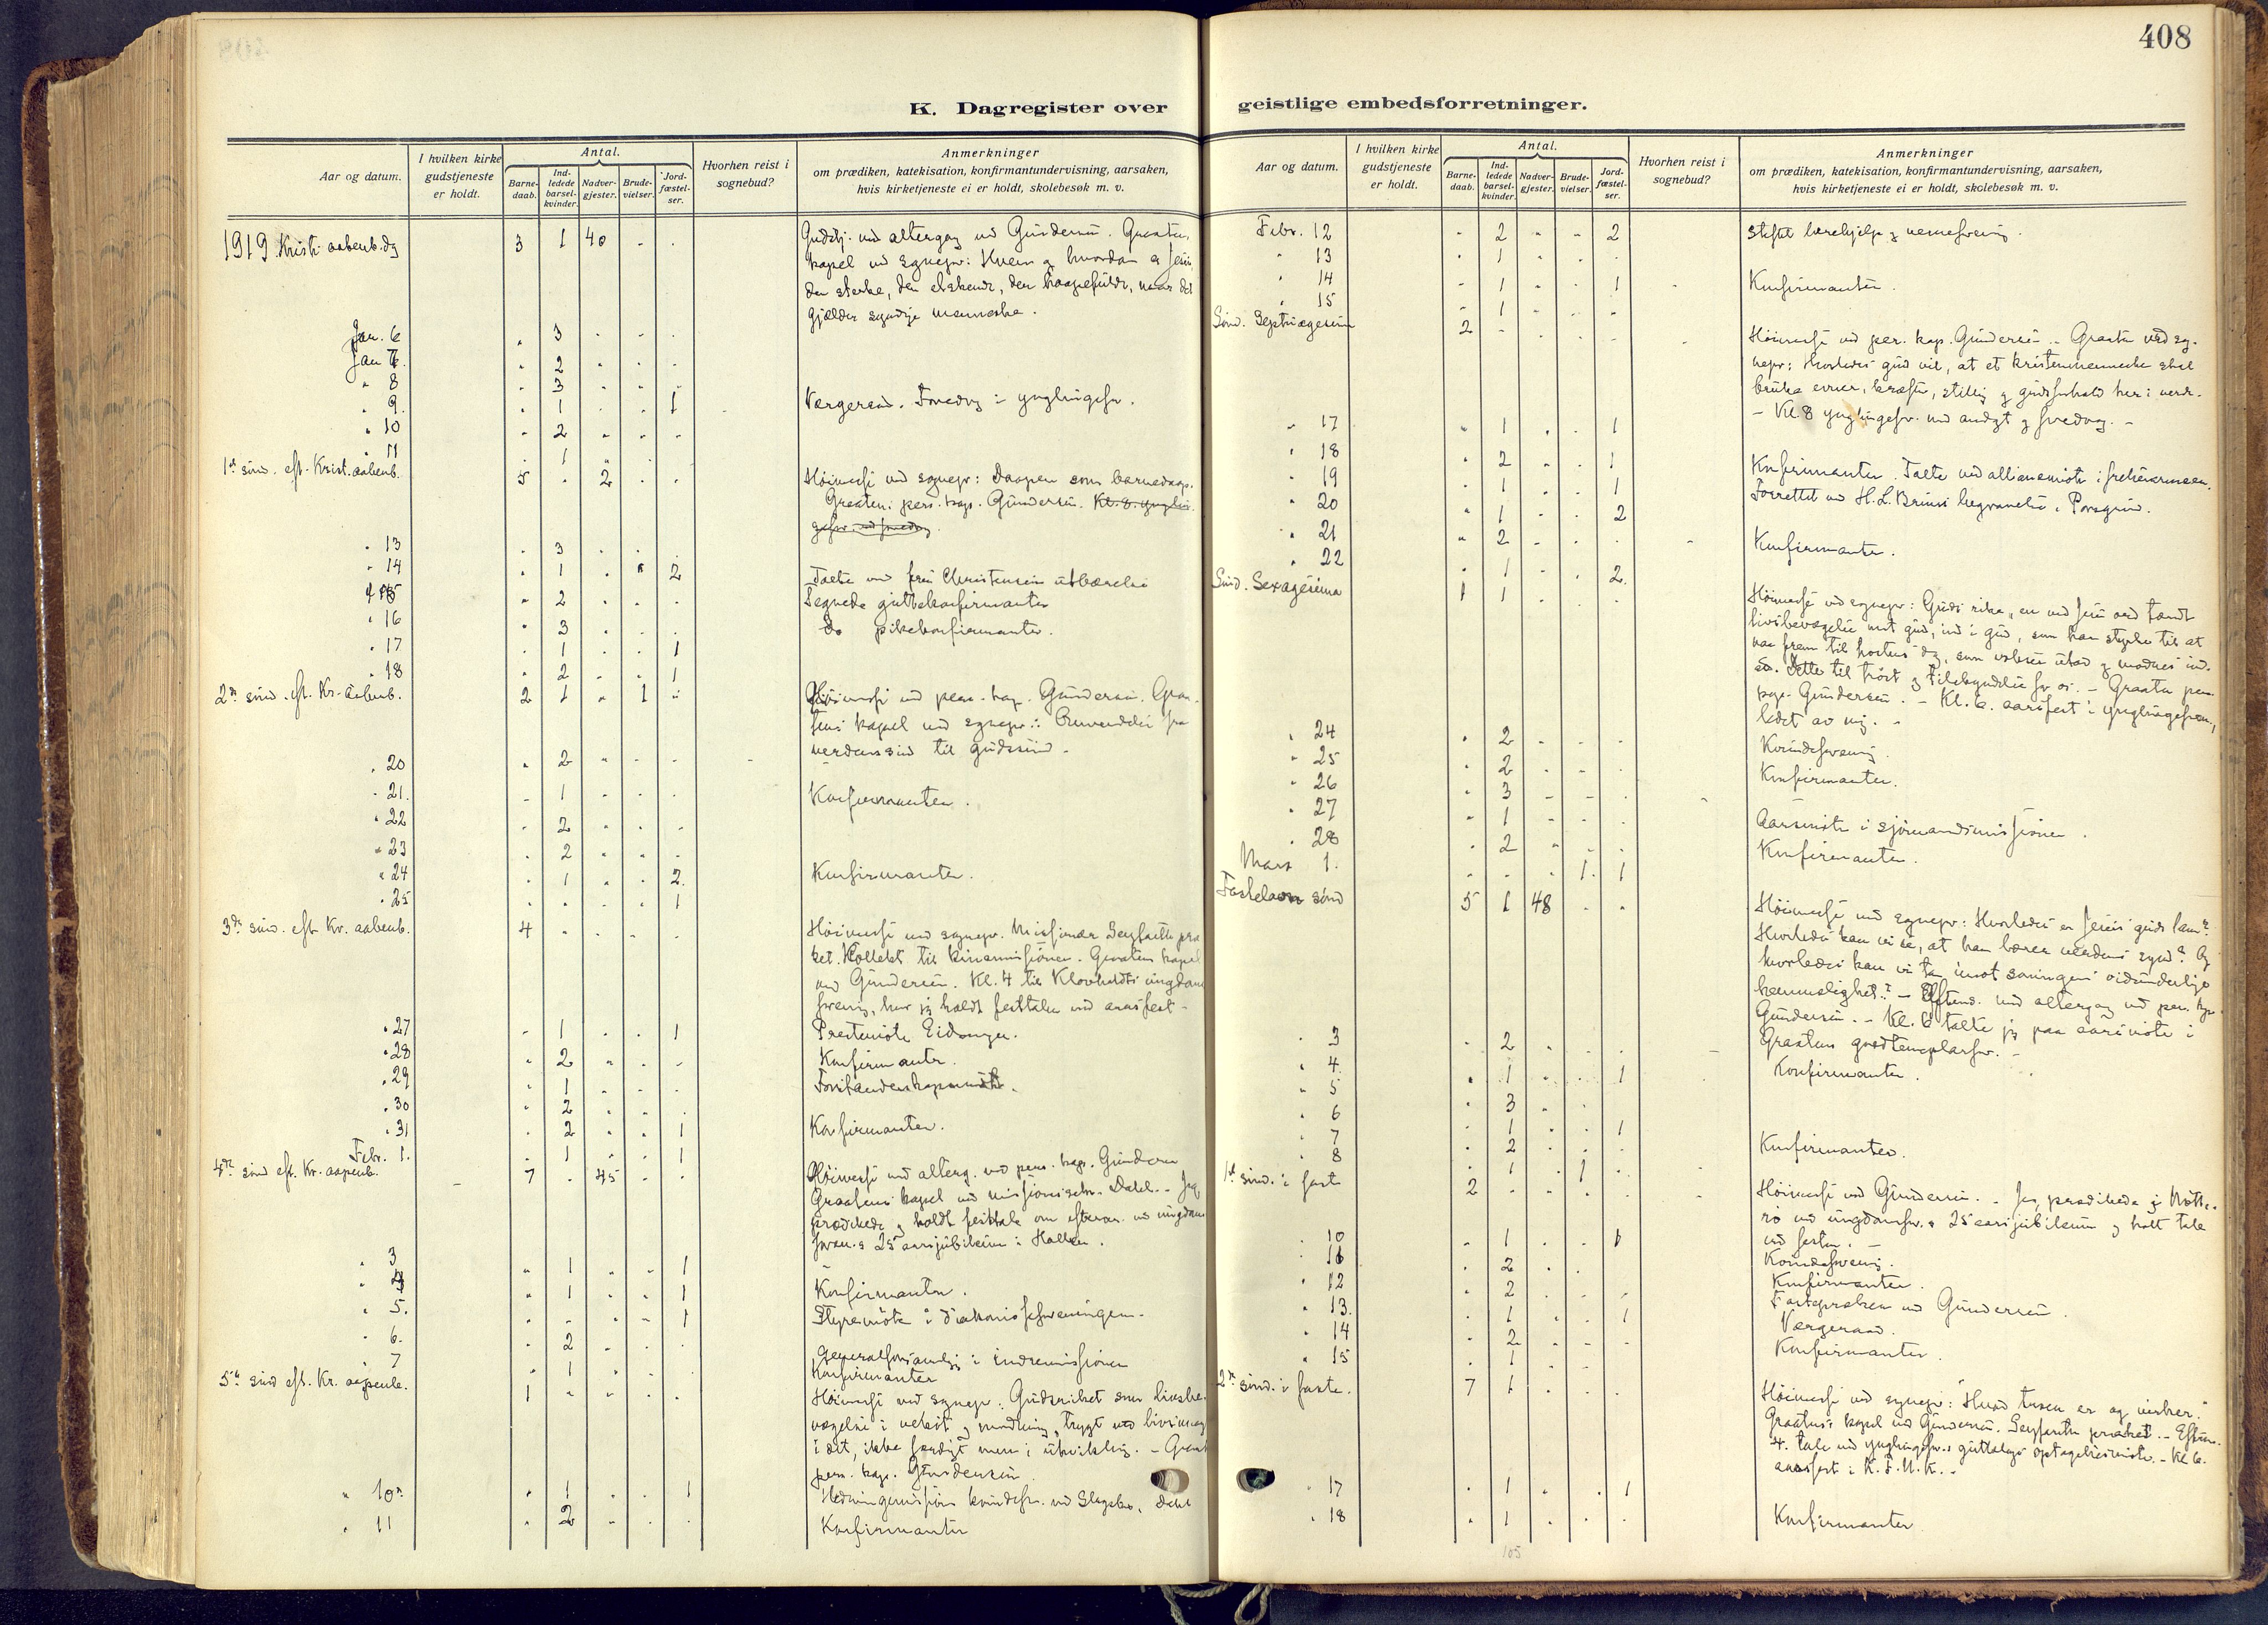 408
K. Dagregister over geistlige embedsforretninger.
Aar og datum.
I hvilken kirke
gudstjeneste
er holdt.
Antal.
Barne-
daab.
Ind-
ledede
barsel-
kvinder.
Nadver-
gjester.
Brude-
vielser.
Jord-
fæstel-
ser.
Hvorhen reist i
sognebud?
Anmerkninger
om prædiken, katekisation, konfirmantundervisning, aarsaken,
hvis kirketjeneste ei er holdt, skolebesøk m. v.
1919. Kristi aabenb. dg 3 1 40 - - Gudstj. ved altergang ved Gundersen. Graaten,
kapel ved sognepr: Hvem og hvordan er Jesus,
den sterke, den elskende, den haapefulde, naar det
gjælder syndige menneske.
Jan. 6 " 3 - - -
Jan 7. - 2 - - -
" 8 - 3 - - -
" 9. - 1 - - 1 Værgeraad. Foredrag i ynglingefor.
" 10 - 2 - - -
" 11 - 1 -
1st sønd. eft. Krist. aabenb. 5 - 2 - - Høimesse ved sognepr: Daapen som barnedaap.
Graaten: pers. kap. Gundersen. Kl. 8. ynglin-
" 13 - 3 - - -
" 14 - 1 - " 2 Talte ved fru Christensens utbærelse
" 15 " 2 - - - Segnede guttekonfirmanter
" 16 " 3 - - - Do pikekonfirmanter.
" 17 - 1 - - 1
" 18 - 2 - - 1
2en sønd. eft. Kr. aabenb. 2 1 " 1 " Høimesse ved pers. kap. Gundersen. Graa-
tens kapel ved sognepr.: Omvendelse fra
verdenssind til gudssind.
" 20 " 2 " - - -
" 21. - 1 - - - Konfirmanter.
" 22 - 2 - - -
" 23 - 2 - - -
" 24 - 1 - - 2. Konfirmanter.
" 25 - - - - 1
3de sønd. eft. Kr. aabenb. 4 - - - - Høimesse ved sognepr. Missionær Seyffarth præ
ket. Kollekt til kinamissionen. Graatens kapel
ved Gundersen. Kl. 4 til Klovholdts ungdoms
forening, hvor jeg holdt festtalen ved aarsfest -
" 27 - 1 - - 1 Prestemøte Eidanger.
" 28 - 2 - - - Konfirmanter.
" 29 - 1 - - - Forstanderskapsmøte.
" 30 - 2 - - -
" 31 - 2 - - 1 Konfirmanter.
Febr. 1. - 1 - - 1
4de sønd eft. Kr. aapenb. - 7 - 45 - - Høimesse ved alterg. ved pers. kap. Gundersen
Graatens kapel ved missionssekr. Dahl. - Jeg
prædikede og holdt festtale om efterm. ved ungdoms
foren.s 25 aarsjubilæum i Hallen.
" 3 " 1 - - 1
" 4 " 1 - - 1 Konfirmanter.
" 5. - - - - 1 Styremøte i diakonisseforeningen.
" 6. - 2 - - -
" 7 - 1 - - - Generalforsamlg i indremissionen
Konfirmanter
5te sønd eft. Kr. aapenb. 1 - - - - Høimesse ved sognepr. Gudsriket som livsbe-
vægelse i vekst og modning, trygt ved livsmag
i det, ikke færdigt men i utvikling. - Graat
pers. kap. Gundersen.
" 10. " 1 - - 1 Hedningemissions kvindefor. ved Slagsbr. Dahl
" 11 " 2 - - - Konfirmanter
Aar og datum.
I hvilken kirke
gudstjeneste
er holdt.
Antal.
Barne-
daab.
Ind-
ledede
barsel-
kvinder.
Nadver-
gjester.
Brude-
vielser.
Jord-
fæstel-
ser.
Hvorhen reist i
sognebud?
Anmerkninger
om prædiken, katekisation, konfirmantundervisning, aarsaken,
hvis kirketjeneste ei er holdt, skolebesøk m. v.
Febr. 12 - 2 - - 2 Stiftet lærehjelp og verneforening.
" 13 - 1 - - -
" 14 - 1 - - 1 Konfirmanter.
" 15 - 1 - - -
Sønd. Septuagesima 2 - - - - Høimesse ved per. kap. Gundersen. - Graaten ved sog-
nepr: Hvorledes gud vil, at et kristenmenneske skal
bruke evner, kræfter, stilling og gudsforhold her i verd.
- Kl. 8 ynglingefor. med andagt og foredrag. -
" 17 " 1 - - 1
" 18 - 2 - - 1
" 19 - 1 - - 1 Konfirmanter. Talte ved alliansemøte i frelsesarmeen.
" 20 " 1 - - 2 Forrettet ved H. L. Bruus' begravelse i Porsgrund.
" 21 " 2 - - -
" 22 - 1 - - 2. Konfirmanter.
Sønd. Sexagesima 1 1 - - - Høimesse ved sognepr: Guds rike, en ved Jesu ord tændt
livsbevægelse mot gud, ind i gud, som har styrke til at
naa frem til høstens dag, som vokser utad og modnes ind-
ad. Dette til trøst og tilskyndelse for os. - Graaten pers.
kap. Gundersen. - Kl. 6. aarsfest i ynglingeforen.,
ledet av mig. -
" 24 - 2 - - - Kvindeforening.
" 25 - 2 - - - Konfirmanter.
" 26 - 3 - - -
" 27 - 1 - - - Aarsmøte i sjømandsmissionen.
" 28 - 2 - - - Konfirmanter.
Mars 1. - - - 1. 1
Fastelavn sønd 5 1 48 - - Høimesse ved sognepr: Hvorledes er Jesus guds lam?
Hvorledes kan vi se, at han bærer verdens synd? Og
hvorledes kan vi ta imot soningens vidunderlige
hemmelighet? - Eftmd. med altergang ved pers. kap.
Gundersen. - Kl. 6 talte jeg paa aarsmøte i
Graatens godtemplarfor. -
" 3 - 2 - - -
" 4. - 1 - - 1 Konfirmanter.
" 5 - 3 - -
" 6 - 1 - - 1
" 7 - 2 - - - Konfirmanter.
" 8 - 1 - 1 -
1st sønd. i faste 2 - - - - Høimesse ved Gundersen. - Jeg prædikede i Nøtte-
rø ved ungdomsfor.s 25 aarsjubileum og holt tale
ved festen. -
" 10 - 1 - - 1
" 11 - 2 - - Kvindeforening.
" 12 - 2 - - - Konfirmanter.
" 13. - 1 - - 1 Fastepræken ved Gundersen.
" 14 - 2 - - - Værgeraad.
" 15 - 1 - - Konfirmanter.
2en sønd. i faste. 7 1 - - - Høimesse ved sognepr: "Hvad troen er og virker."
Graatens kapel ved Gundersen. Seyffarth præket. - Eftm.
4. tale ved ynglingefor.s guttelags optagelsesmøte. - Kl 6.
aarsfest i K. F. U. K. -
" 17 - 1 - - 1
" 18 - 1 - - - Konfirmanter
105